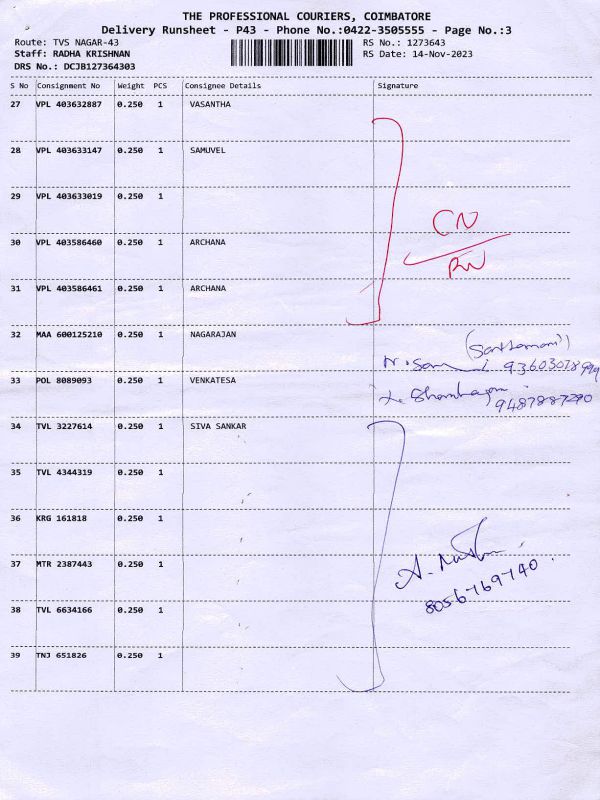 THE PROFESSIONAL COURIERS, COIMBATORE
Delivery Runsheet - P43 - Phone No.:0422-3505555 - Page No.:3
Route: TVS NAGAR-43 RS No.: 1273643
Staff: RADHA KRISHNAN RS Date: 14-Nov-2023
DRS No.: DCJB127364303
S No Consignment No Weight PCS Consignee Details Signature
27 VPL 403632887 0.250 1 VASANTHA
28 VPL 403633147 0.250 1 SAMUVEL
29 VPL 403633019 0.250 1
CN
30 VPL 403586460 0.250 1 ARCHANA
31 VPL 403586461 0.250 1 ARCHANA
32 MAA 600125210 0.250 1 NAGARAJAN
33 POL 8089093 0.250 1 VENKATESA
9487887290
34 TVL 3227614 0.250 1 SIVA SANKAR
35 TVL 4344319 0.250 1
36 KRG 161818 0.250 1
37 MTR 2387443 0.250 1
8056769740
38 TVL 6634166 0.250 1
39 TNJ 651826 0.250 1